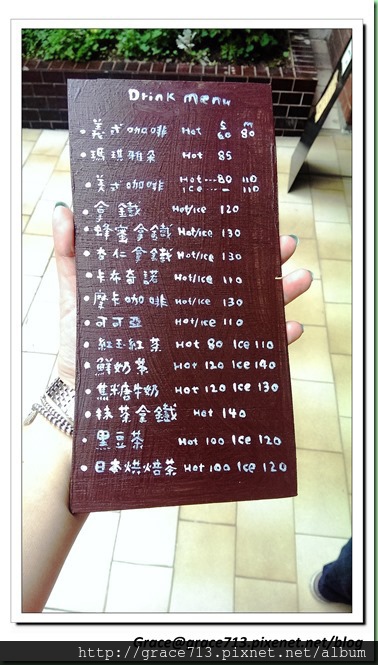 Drink menu
S M
• 義式咖啡 Hot 60 80
• 瑪琪雅朵 Hot 85
Hot---80 110
• 美式咖啡
Ice--- — 110
• 拿鐵 Hot/Ice 120
• 蜂蜜拿鐵 Hot/Ice 130
• 杏仁拿鐵 Hot/Ice 130
• 卡布奇諾 Hot/Ice 110
• 摩卡咖啡 Hot/Ice 130
• 可可亞 Hot/Ice 110
• 紅玉紅茶 Hot 80 Ice 110
• 鮮奶茶 Hot 120 Ice 140
• 焦糖牛奶 Hot 120 Ice 130
• 抹茶拿鐵 Hot 140
• 黑豆茶 Hot 100 Ice 120
• 日本烘焙茶 Hot 100 Ice 120
Grace@grace713.pixenet.net/blog
http://grace713.pixnet.net/album